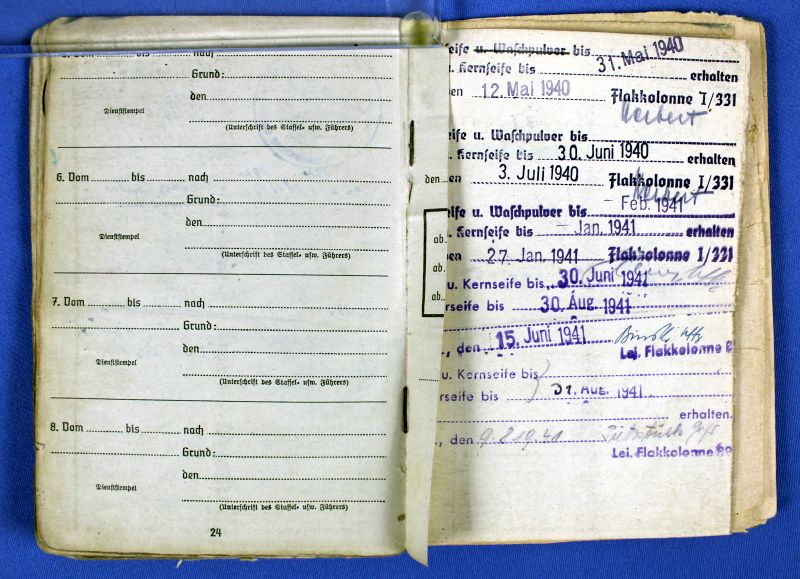 5. Vom ........ bis ........ nach
Grund:
den
Dienststempel
(Unterschrift des Staffel- usw. Führers)
6. Vom ........ bis ........ nach
Grund:
den
Dienststempel
(Unterschrift des Staffel- usw. Führers)
7. Vom ........ bis ........ nach
Grund:
den
Dienststempel
(Unterschrift des Staffel- usw. Führers)
8. Vom ........ bis ........ nach
Grund:
den
Dienststempel
(Unterschrift des Staffel- usw. Führers)
24
den
ab
ab
ab
eife u. Waschpulver bis 31. Mai 1940
u. Kernseife bis erhalten
en 12. Mai 1940 Flakkolonne I/331
eife u. Waschpulver bis
. Kernseife bis 30. Juni 1940 erhalten
en 3. Juli 1940 Flakkolonne I/331
eife u. Waschpulver bis - Feb. 1941
. Kernseife bis - Jan. 1941 erhalten
en 27. Jan. 1941 Flakkolonne I/331
u. Kernseife bis 30. Juni 1941
rseife bis 30. Aug. 1941
., den 15. Juni 1941
Lei. Flakkolonne 8
u. Kernseife bis
rseife bis 31. Aug. 1941
erhalten.
., den 9.8.1941
Lei. Flakkolonne 89